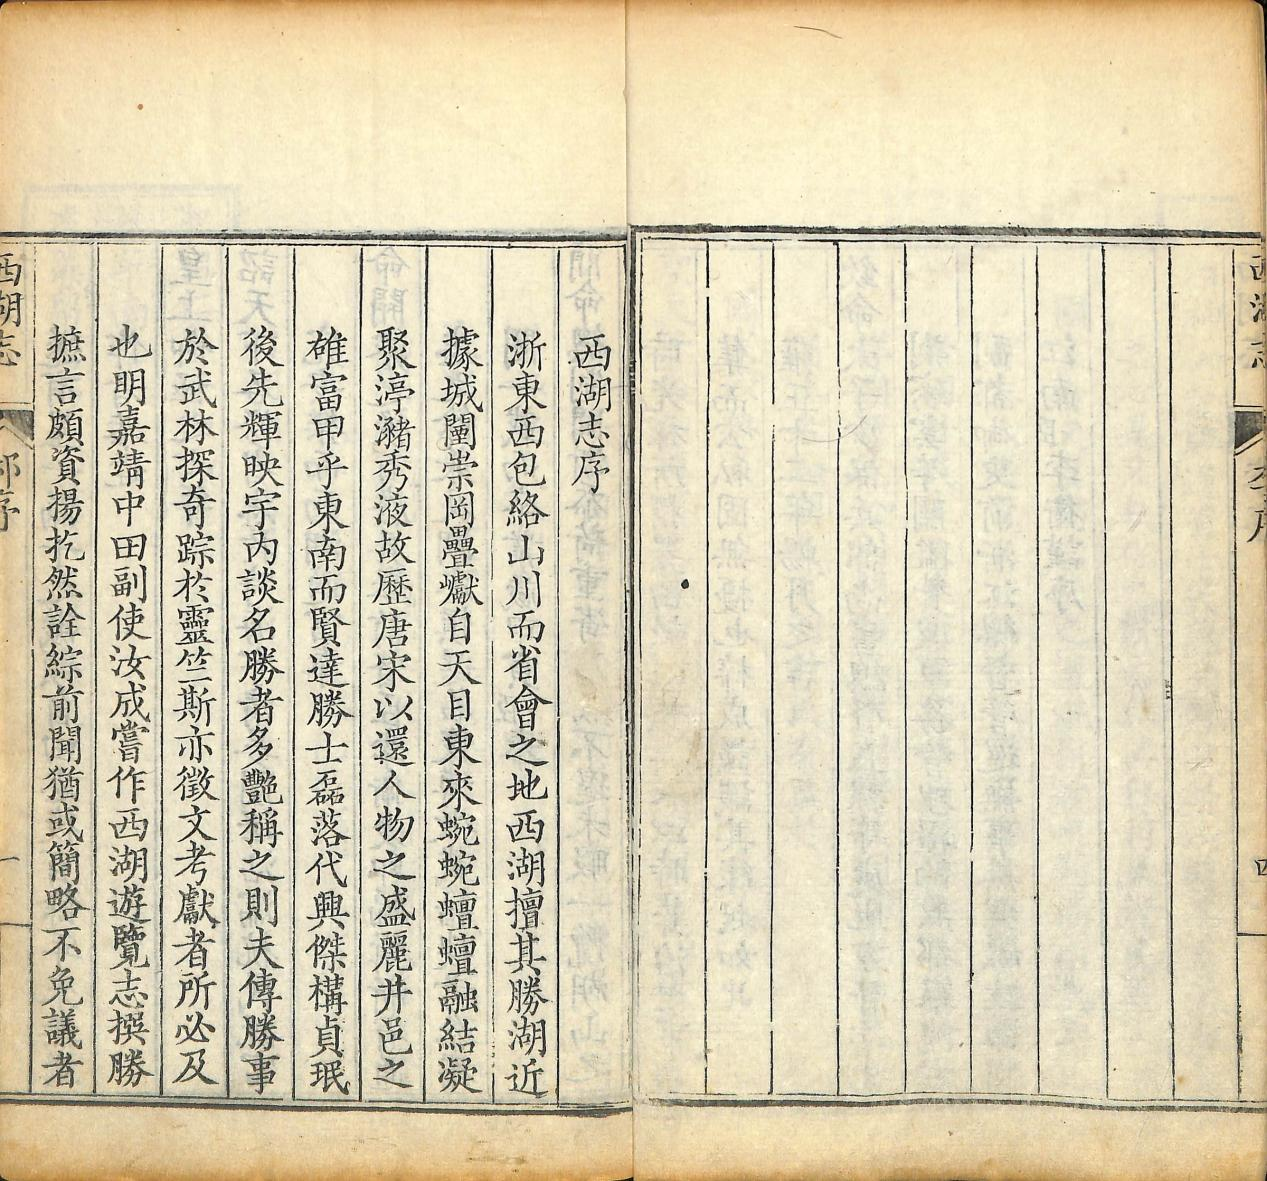 西湖志序
浙東西包絡山川而省會之地西湖擅其勝湖近
據城闉崇岡疊巘自天目東來蜿蜿蟺蟺融結凝
聚渟瀦秀液故歷唐宋以還人物之盛麗井邑之
雄富甲乎東南而賢達勝士磊落代興傑構貞珉
後先輝映宇內談名勝者多艷稱之則夫傳勝事
於武林探奇踪於靈竺斯亦徵文考獻者所必及
也明嘉靖中田副使汝成嘗作西湖遊覽志撰勝
摭言頗資揚扢然詮綜前聞猶或簡略不免議者
西湖志
序
一
西湖志
李序
四